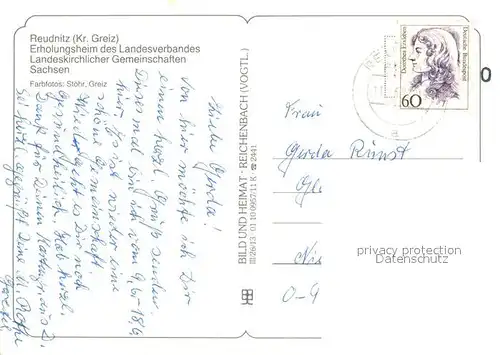 Reudnitz (Kr. Greiz)
Erholungsheim des Landesverbandes
Landeskirchlicher Gemeinschaften
Sachsen
Farbfotos: Stöhr, Greiz
Liebe Gerda!
Von hier möchte ich Dir
einen herzl. Gruß senden.
Diesmal bin ich vom 9.6.-18.6.
hier. Es ist wieder eine
schöne Gemeinschaft.
Wie geht es Dir
gesundheitlich. Hab herzl.
Dank für Deinen
Sei herzl. gegrüßt Deine M.
BILD UND HEIMAT · REICHENBACH (VOGTL.)
III/26/13 · 01 10 0957/11 K · ☎ 2441
Dorothea Erxleben
Deutsche Bundespost
60
a
Frau
Gerda
O-9
privacy protection
Datenschutz